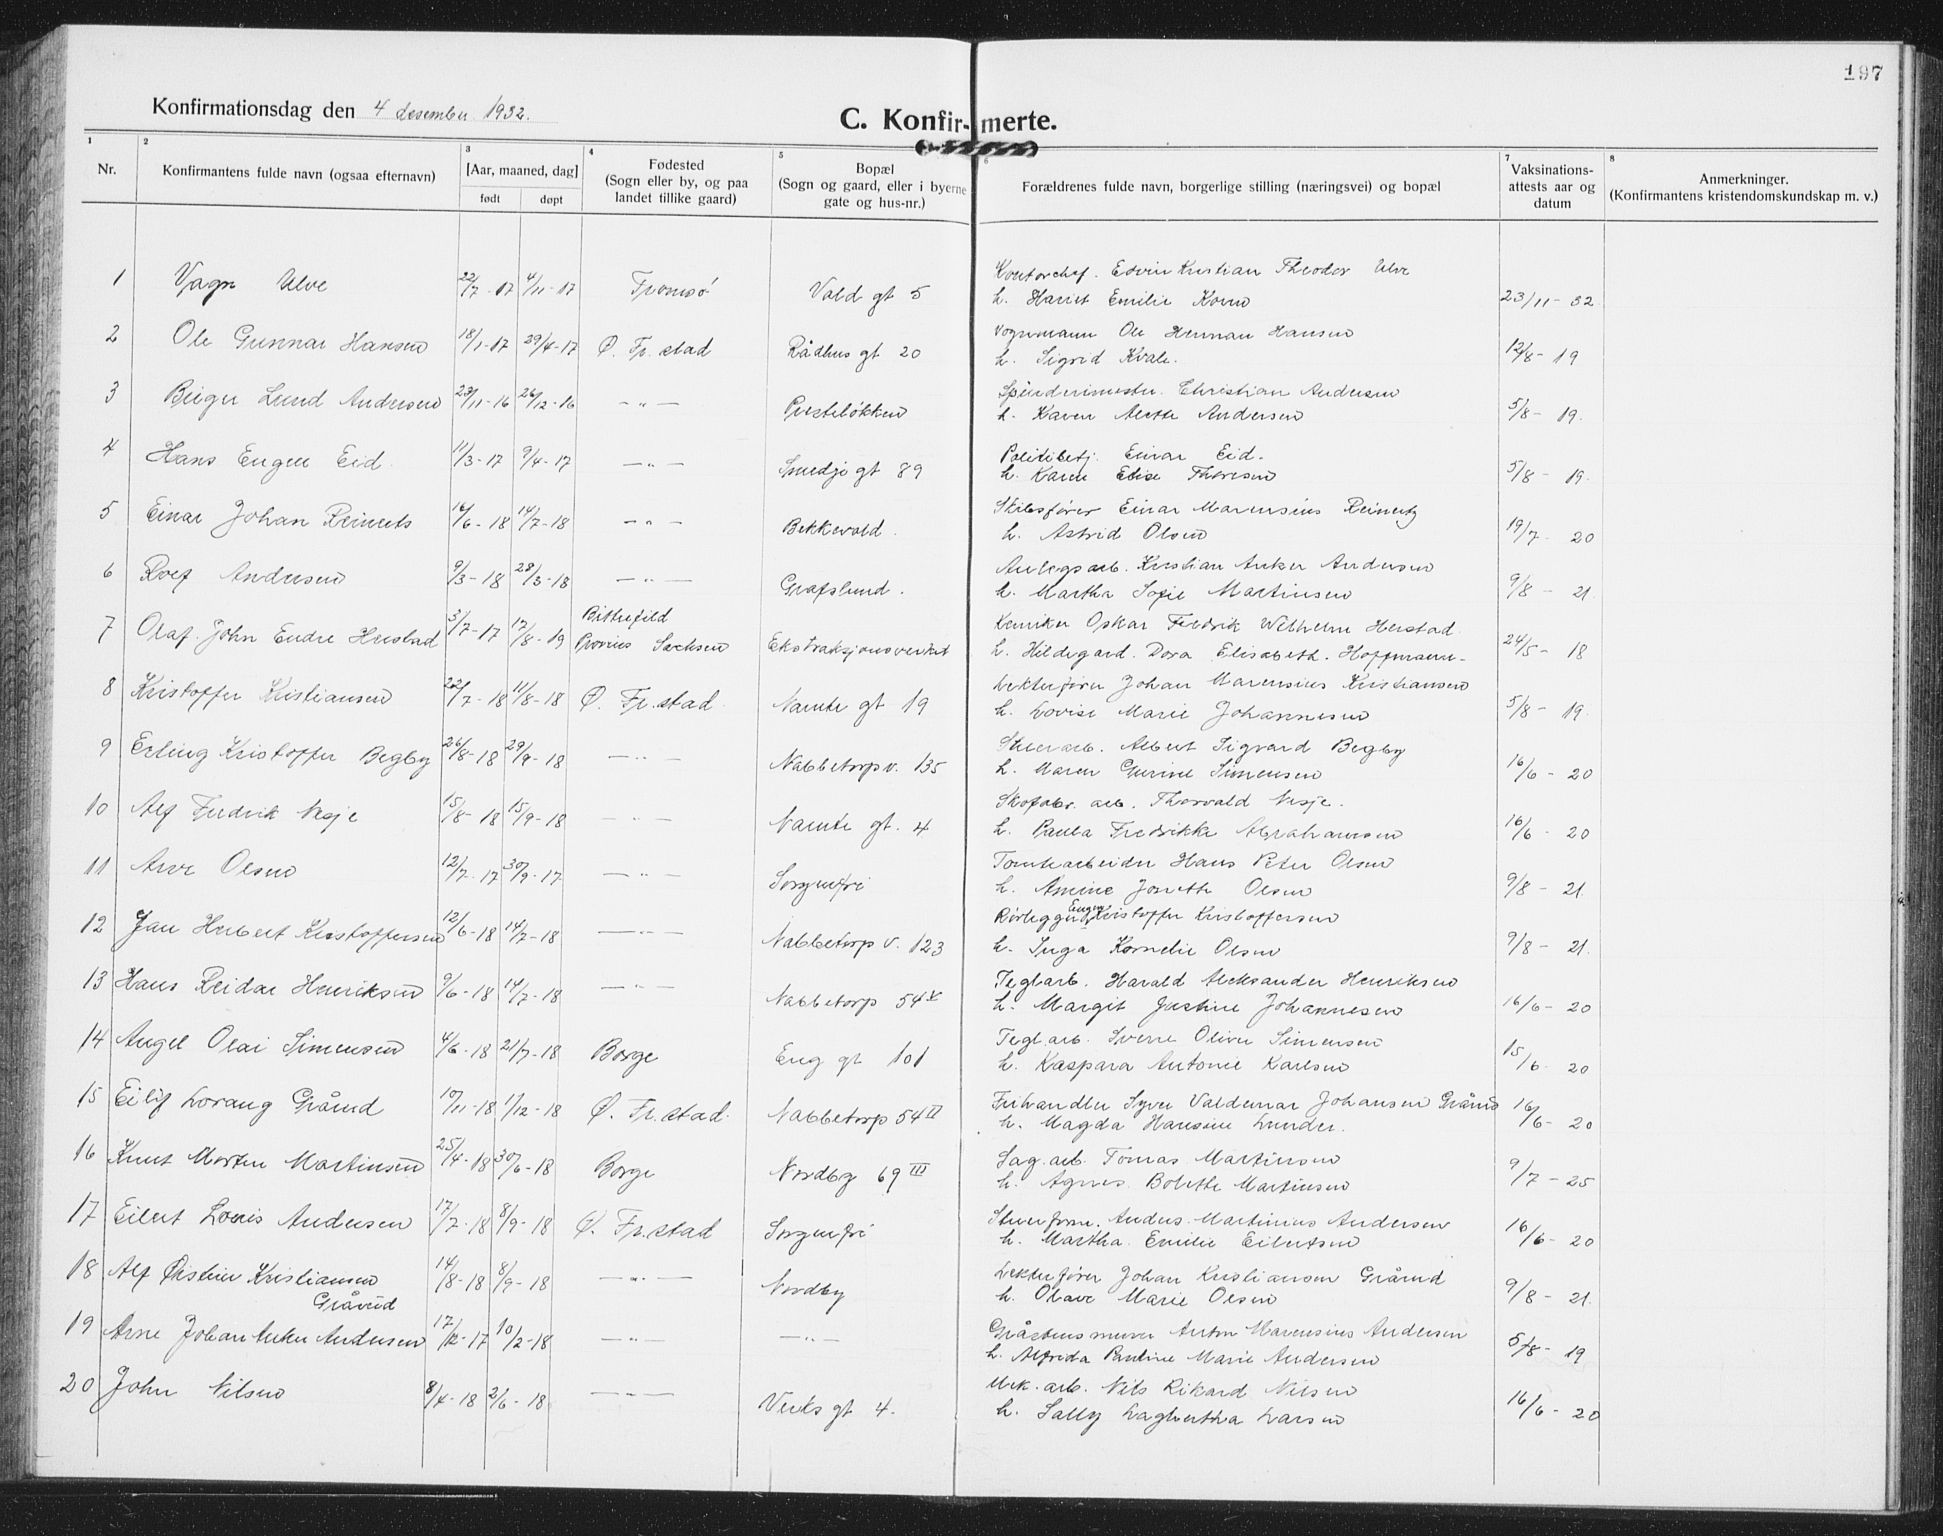 197
Konfirmationsdag den 4 desember 1932.
C. Konfir- merte.
1 2 3 4 5 6 7 8
Nr. Konfirmantens fulde navn (ogsaa efternavn) [Aar, maaned, dag] født døpt Fødested (Sogn eller by, og paa landet tillike gaard) Bopæl (Sogn og gaard, eller i byerne gate og hus-nr.) Forældrenes fulde navn, borgerlige stilling (næringsvei) og bopæl Vaksinations-attests aar og datum Anmerkninger. (Konfirmantens kristendomskundskap m. v.)
1 Vagn Ulve 22/7-17 4/11-17 Tromsø Vold gt 5 Kontorchef. Edvin Kristian Theodor Ulve
h. Hariet Emilie 23/11-32
2 Ole Gunnar Hansen 18/1-17 29/4-17 Ø. Fr.stad Rådhus gt 20 Vognmann Ole Herman Hansen
h. Sigrid Kvale. 12/8-19
3 Birger Lund Andersen 23/11-16 26/12-16 -"- Presteløkken Spinderimester. Christian Andersen
h. Karen Andersen 5/8-19.
4 Hans Eugen Eid. 11/3-17 9/4-17 -"- Smedje gt 89 Politibetj. Einar Eid.
h. Karen Elise Thoresen 5/8-19.
5 Einar Johan Reinerts 16/6-18 14/7-18 -"- Bekkevold. Skibsfører Einar Marensius Reinertz
h. Astrid Olsen 19/7-20
6 Rolf Andersen 9/3-18 28/3-18 -"- Grafslund. Anlegsarb. Kristian Anker Andersen
h. Martha Sofie Martinsen 9/8-21.
7 Olaf John Endre Herstad 3/7-17 17/8-19 Bitterfeld
Provins Sachsen Ekstraksjonsverket Kemiker Oskar Fredrik Wilhelm Herstad.
h. Hildegard. Dora Elisabeth. Hoffmann- 24/5-18
8 Kristoffer Kristiansen 22/7-18 11/8-18 Ø. Fr.stad. Narnte gt 19 Lekterfører Johan Marensius Kristiansen
h. Lovise Marie Johannesen 5/8-19.
9 Erling Kristoffer Begby 26/8-18 29/9-18 -"- Nabbetorp v. 135 Stuerarb. Albert Sigvard Begby
h. Maren Gurine Simensen 16/6-20
10 Alf Fredrik Nesje 15/8-18 15/9-18 -"- Narnte gt. 4 Skofabr. arb. Thorvald Nesje.
h. Paula Fredrikke Abrahamsen 16/6-20
11 Arve Olsen 12/7-17 30/9-17 -"- Sorgenfri Tomtearbeider Hans Peter Olsen
h. Amine Josette Olsen 9/8-21.
12 Jan Herbert Kristoffersen 12/6-18 14/7-18 -"- Nabbetorp v. 123 Rørlegger Eugen Kristoffer Kristoffersen
h. Inga Kornelie Olsen 9/8-21.
13 Hans Reidar Henriksen 9/6-18 14/7-18 -"- Nabbetorp 54 V Teglarb. Harald Aleksander Henriksen
h. Margit Justine Johannesen 16/6-20
14 Angel Olai Simensen 4/6-18 21/7-18 Borge Eng gt 101 Teglarb. Sverre Oliver Simensen
h. Kaspara Antonie Karlsen 15/6-20
15 Eilif Lorang Grårud 10/11-18 1/12-18 Ø. Fr.stad. Nabbetorp 54 II Frihandler Syver Valdemar Johansen Grårud
h. Magda Hansine Lunder. 16/6-20
16 Knut Morten Martinsen 25/4-18 30/6-18 Borge Nordby 69 III Sag.arb. Tomas Martinsen
h. Agnes Bolette Martinsen 9/7-25
17 Eilert Louis Andersen 17/7-18 8/9-18 Ø. Fr.stad Sorgenfri Stuerform. Anders Martinius Andersen
h. Martha Emilie Eilertsen 16/6-20
18 Alf Øistein Kristiansen
Grårud 14/8-18 8/9-18 -"- Nordby Lekterfører Johan Kristiansen Grårud
h. Olave Marie Olsen 9/8-21.
19 Arne Johan Anker Andersen 17/12-17 10/2-18 -"- -"- Gråstensmurer Anton Marensius Andersen
h. Alfrida Pauline Marie Andersen 5/8-19
20 John Nilsen 8/4-18 2/6-18 -"- Verks gt 4. Mek. arb. Nils Rikard Nilsen
h. Sally Dagbertha Larsen 16/6-20